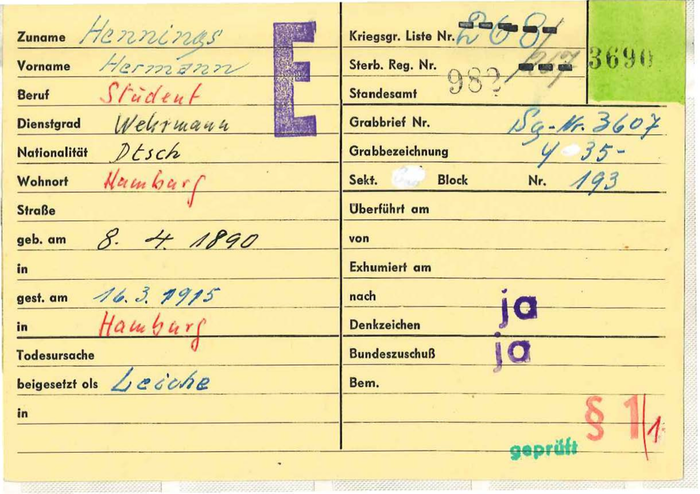 Zuname Hennings
Vorname Hermann
Beruf Student
Dienstgrad Wehrmann
Nationalität Dtsch
Wohnort Hamburg
Straße
geb. am 8. 4. 1890
in
gest. am 16.3.1915
in Hamburg
Todesursache
beigesetzt als Leiche
in
E
Kriegsgr. Liste Nr. 2681
Sterb. Reg. Nr. 982
3690
Standesamt
Grabbrief Nr. Sg-Nr. 3607
Grabbezeichnung 35-
Sekt. Block Nr. 193
Überführt am
von
Exhumiert am
nach
Denkzeichen ja
Bundeszuschuß ja
Bem.
§ 1/1
geprüft